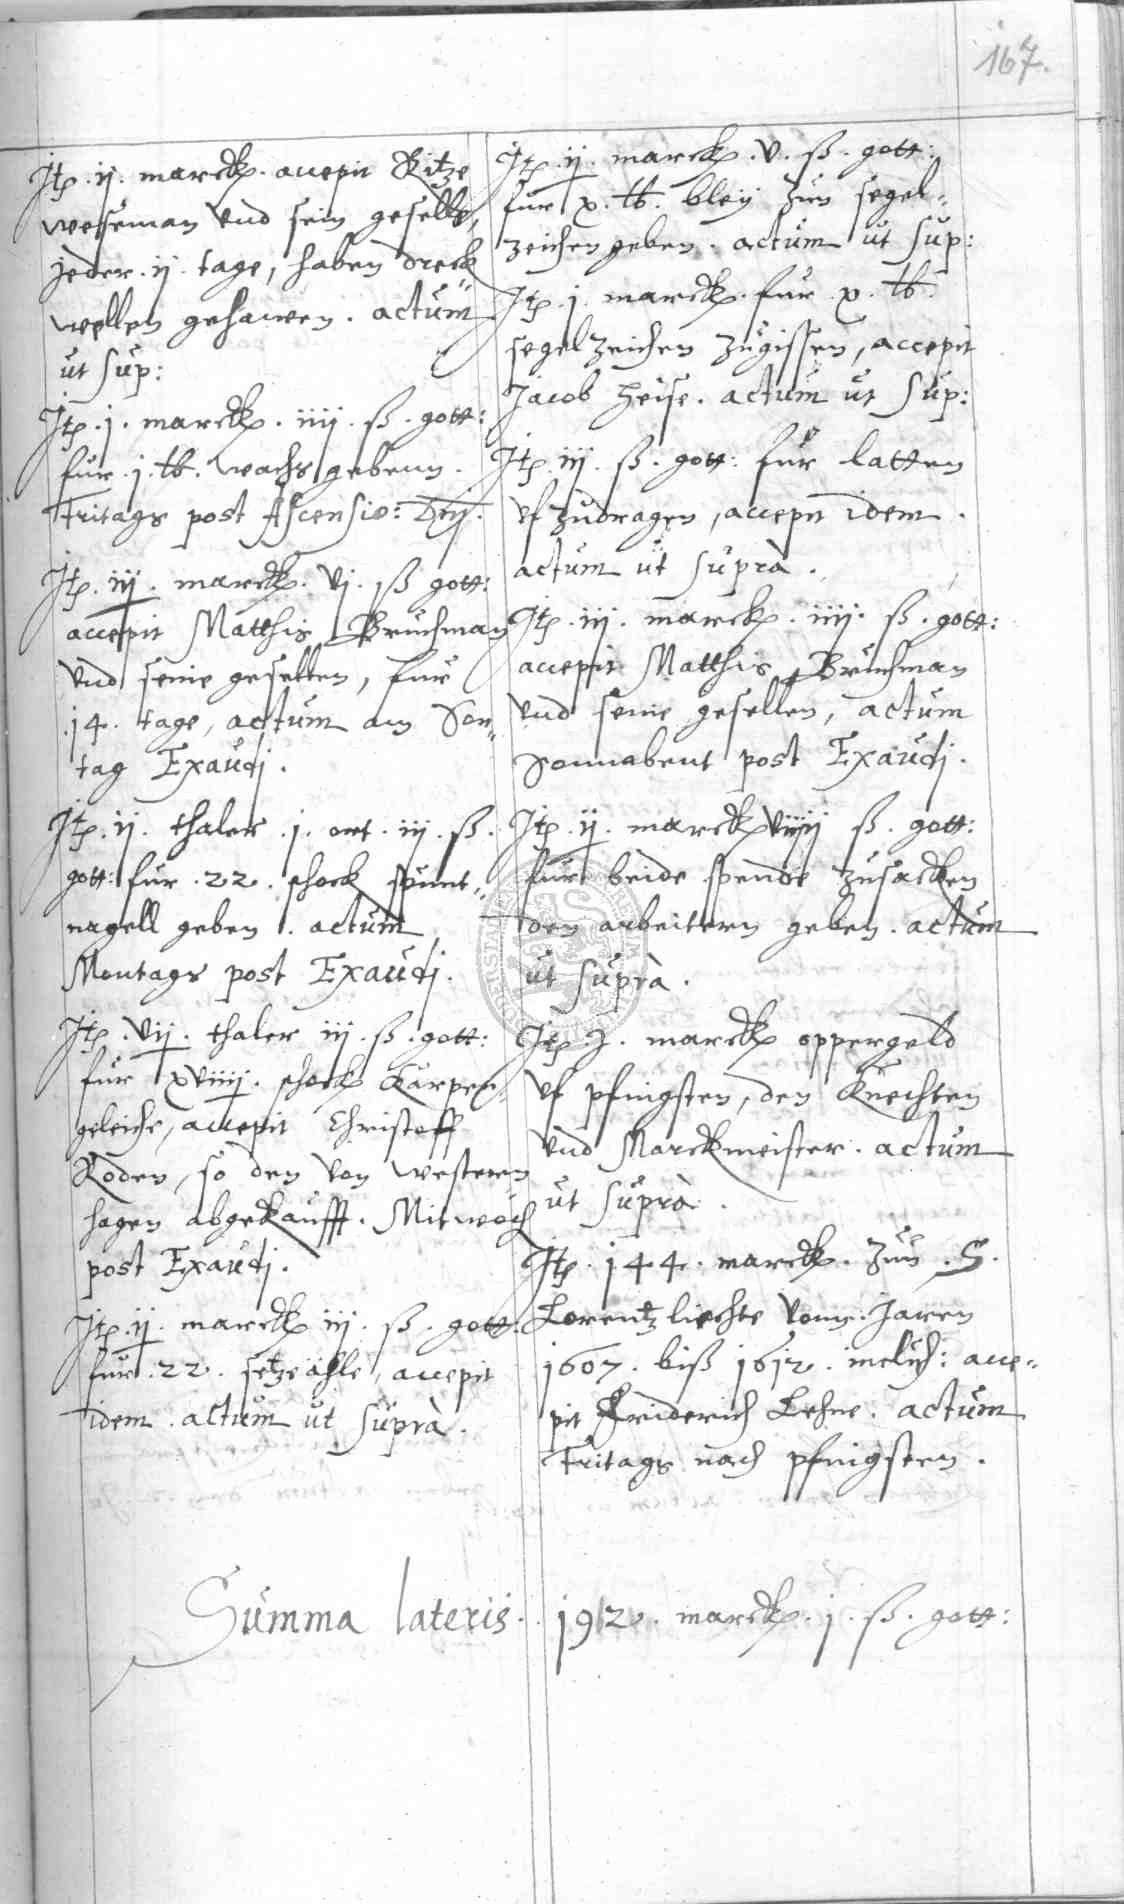 167.
Itp. ij. marck. accepit Ritze
weseman vnd sein geselle,
jeder. ij. tage, haben dreck
wellen gehawen. actum
ut sup:
Itp. j. marck. iiij. ß. gott:
fur. j. tb. wachs gebenn.
Fritags post Ascensio: Dnj.
Itp. iij. marck. vj. ß gott:
accepit Matthis Bruchman
vnd seine gesellen, fur
.14. tage, actum am Son„
tag Exaudj.
Itp. ij. thaler. j. ort. iij. ß.
gott: fur. 22. schock spunt„
nagell geben. actum
Montags post Exaudj.
Itp. vij. thaler iij. ß. gott:
fur xviiij. schock Karpen„
geleiche, accepit Christoff
Roden, so den von western
hagen abgekaufft. Mitwoch
post Exaudj.
Itp. ij. marck iij. ß. gott:
fur. 22. setze ähle, accepit
idem. actum ut suprà.
Itp. ij. marck. v. ß. gott:
fur x. tb. bley zun segel„
zeichen geben. actum ut sup:
Itp. j. marck. fur. x. tb.
segelzeichen zugissen, accepit
Jacob Heise. actum ut sup:
Itp. iij. ß. gott: fur latten
vf zudragen, accepit idem.
actum ut suprà.
Itp. iij. marck. iiij. ß. gott:
accepit Matthis Bruchman
vnd seine gesellen, actum
Sonnabent post Exaudj.
Itp. ij. marck viiij ß. gott:
fur beide spende zusacken
den arbeitern geben. actum
ut suprà.
Itp. j. marck oppergeld
vf pfingsten, den Knechten
vnd Marckmeister. actum
ut suprà.
Itp. 144. marck. zun. S.
Lorentz liechte vom: Jaren
1607. biß 1612. inclus: acce„
pit Friderich Lehne. actum
Fritags nach pfingsten.
Summa lateris. 192. marck. j. ß. gott: